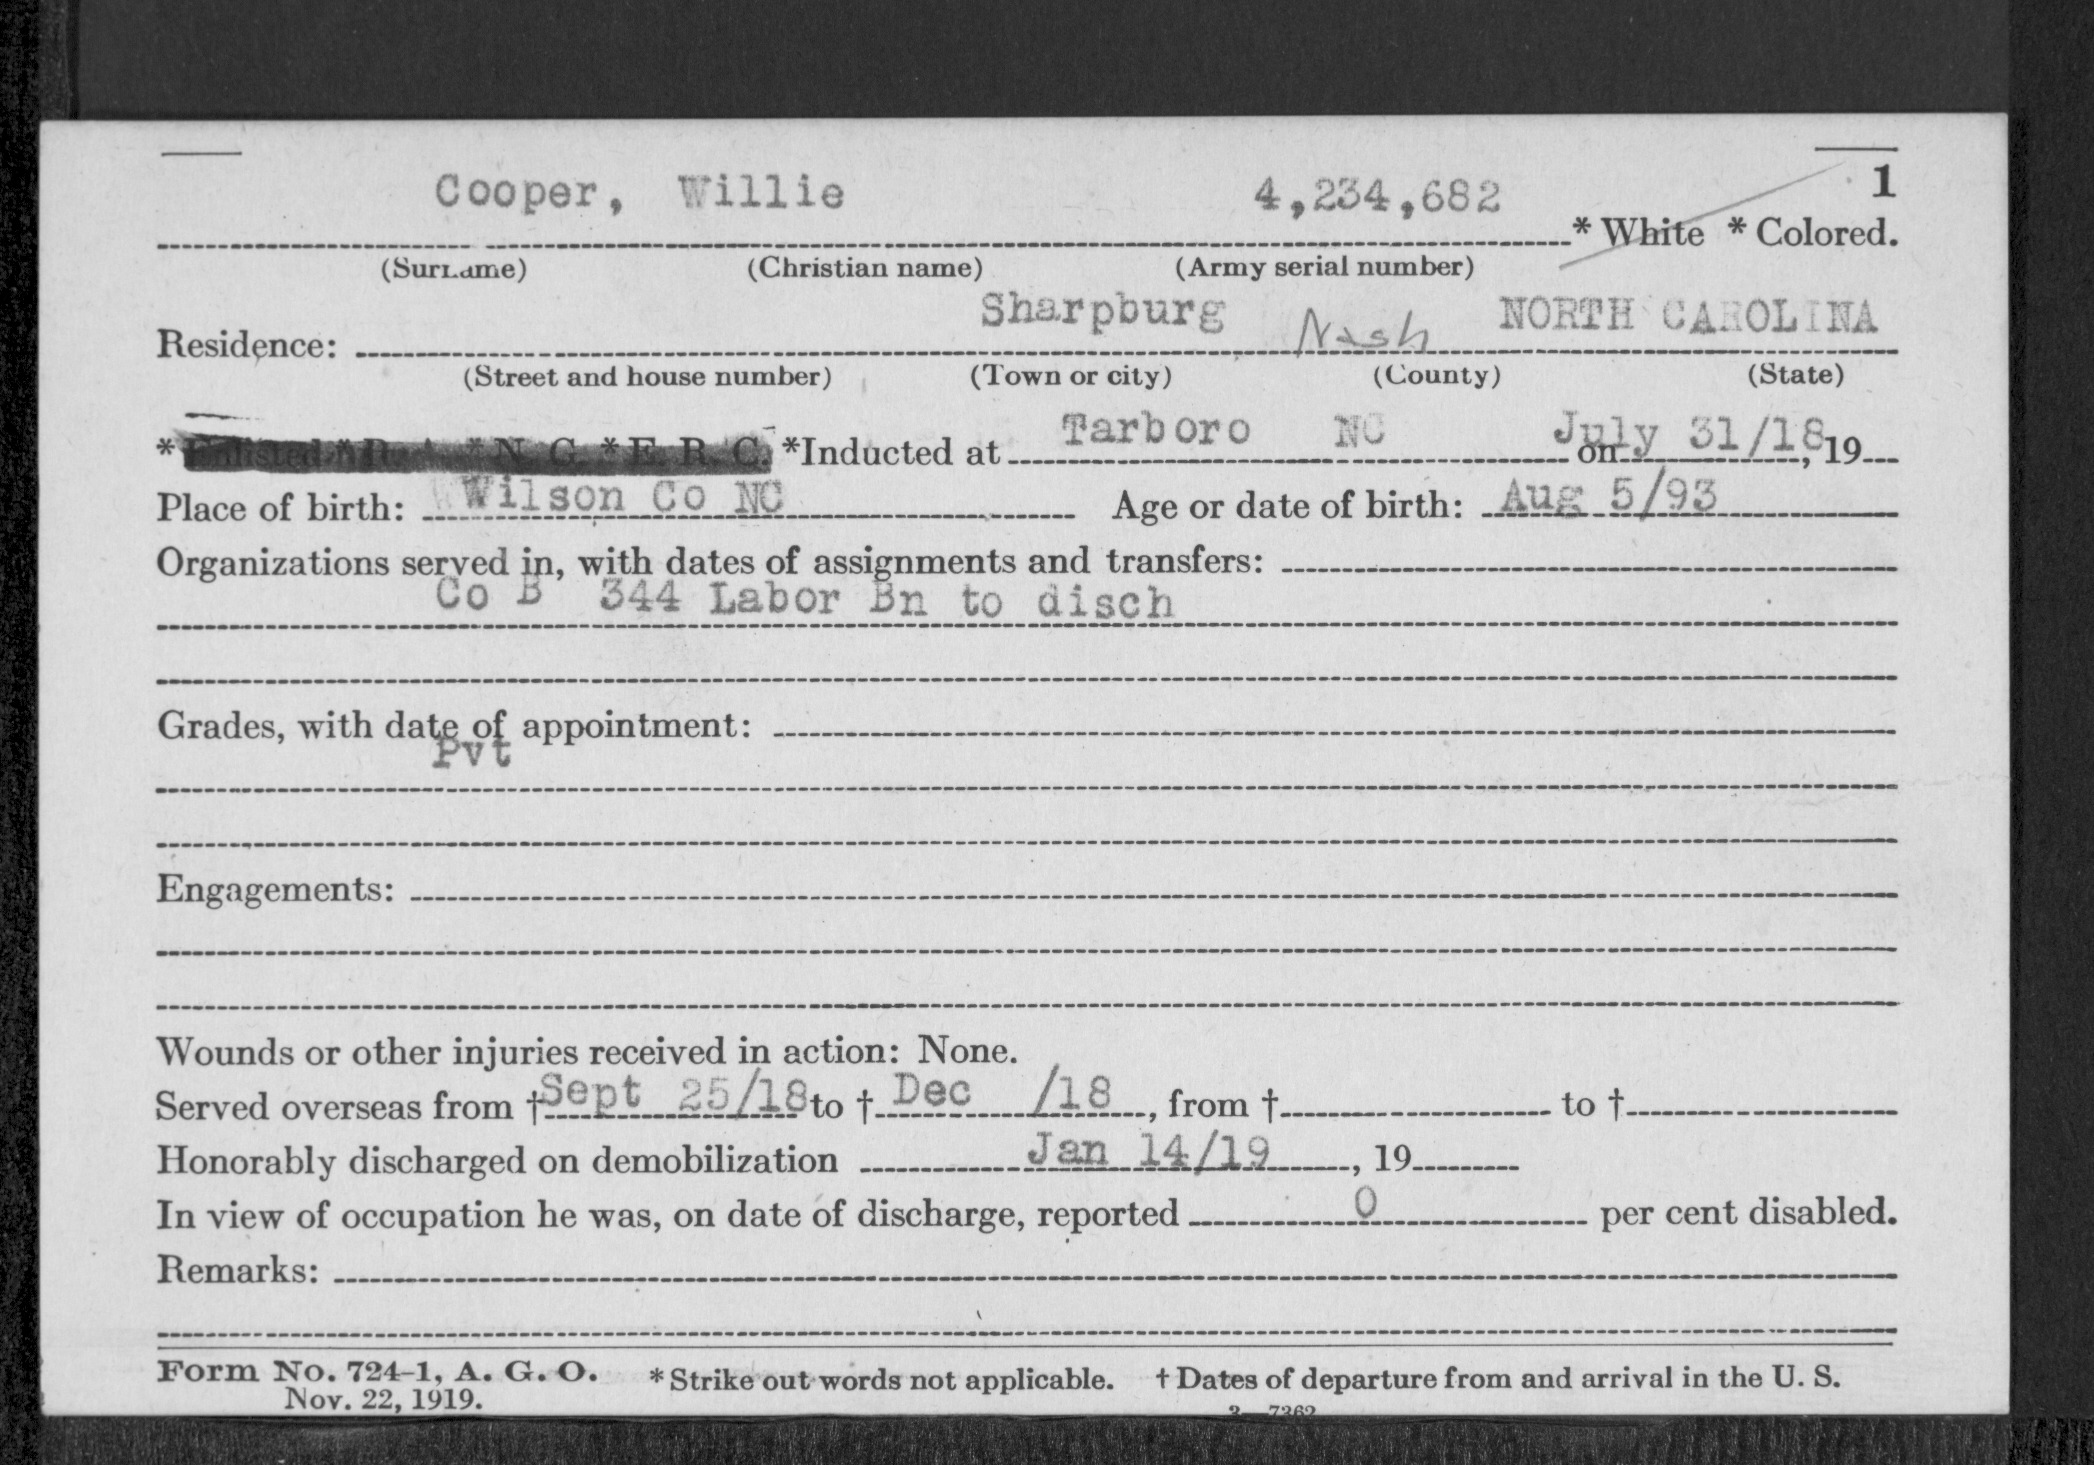 1
Cooper, Willie 4,234,682 * White * Colored.
(Surname) (Christian name) (Army serial number)
Residence: Sharpburg Nash NORTH CAROLINA
(Street and house number) (Town or city) (County) (State)
* Enlisted * R. A. * N. G. * E. R. C. *Inducted at Tarboro NC on July 31/18, 19
Place of birth: Wilson Co NC Age or date of birth: Aug 5/93
Organizations served in, with dates of assignments and transfers:
Co B 344 Labor Bn to disch
Grades, with date of appointment:
Pvt
Engagements:
Wounds or other injuries received in action: None.
Served overseas from † Sept 25/18 to † Dec /18, from † to †
Honorably discharged on demobilization Jan 14/19, 19
In view of occupation he was, on date of discharge, reported 0 per cent disabled.
Remarks:
Form No. 724-1, A. G. O. * Strike out words not applicable. † Dates of departure from and arrival in the U. S.
Nov. 22, 1919.
3—7362